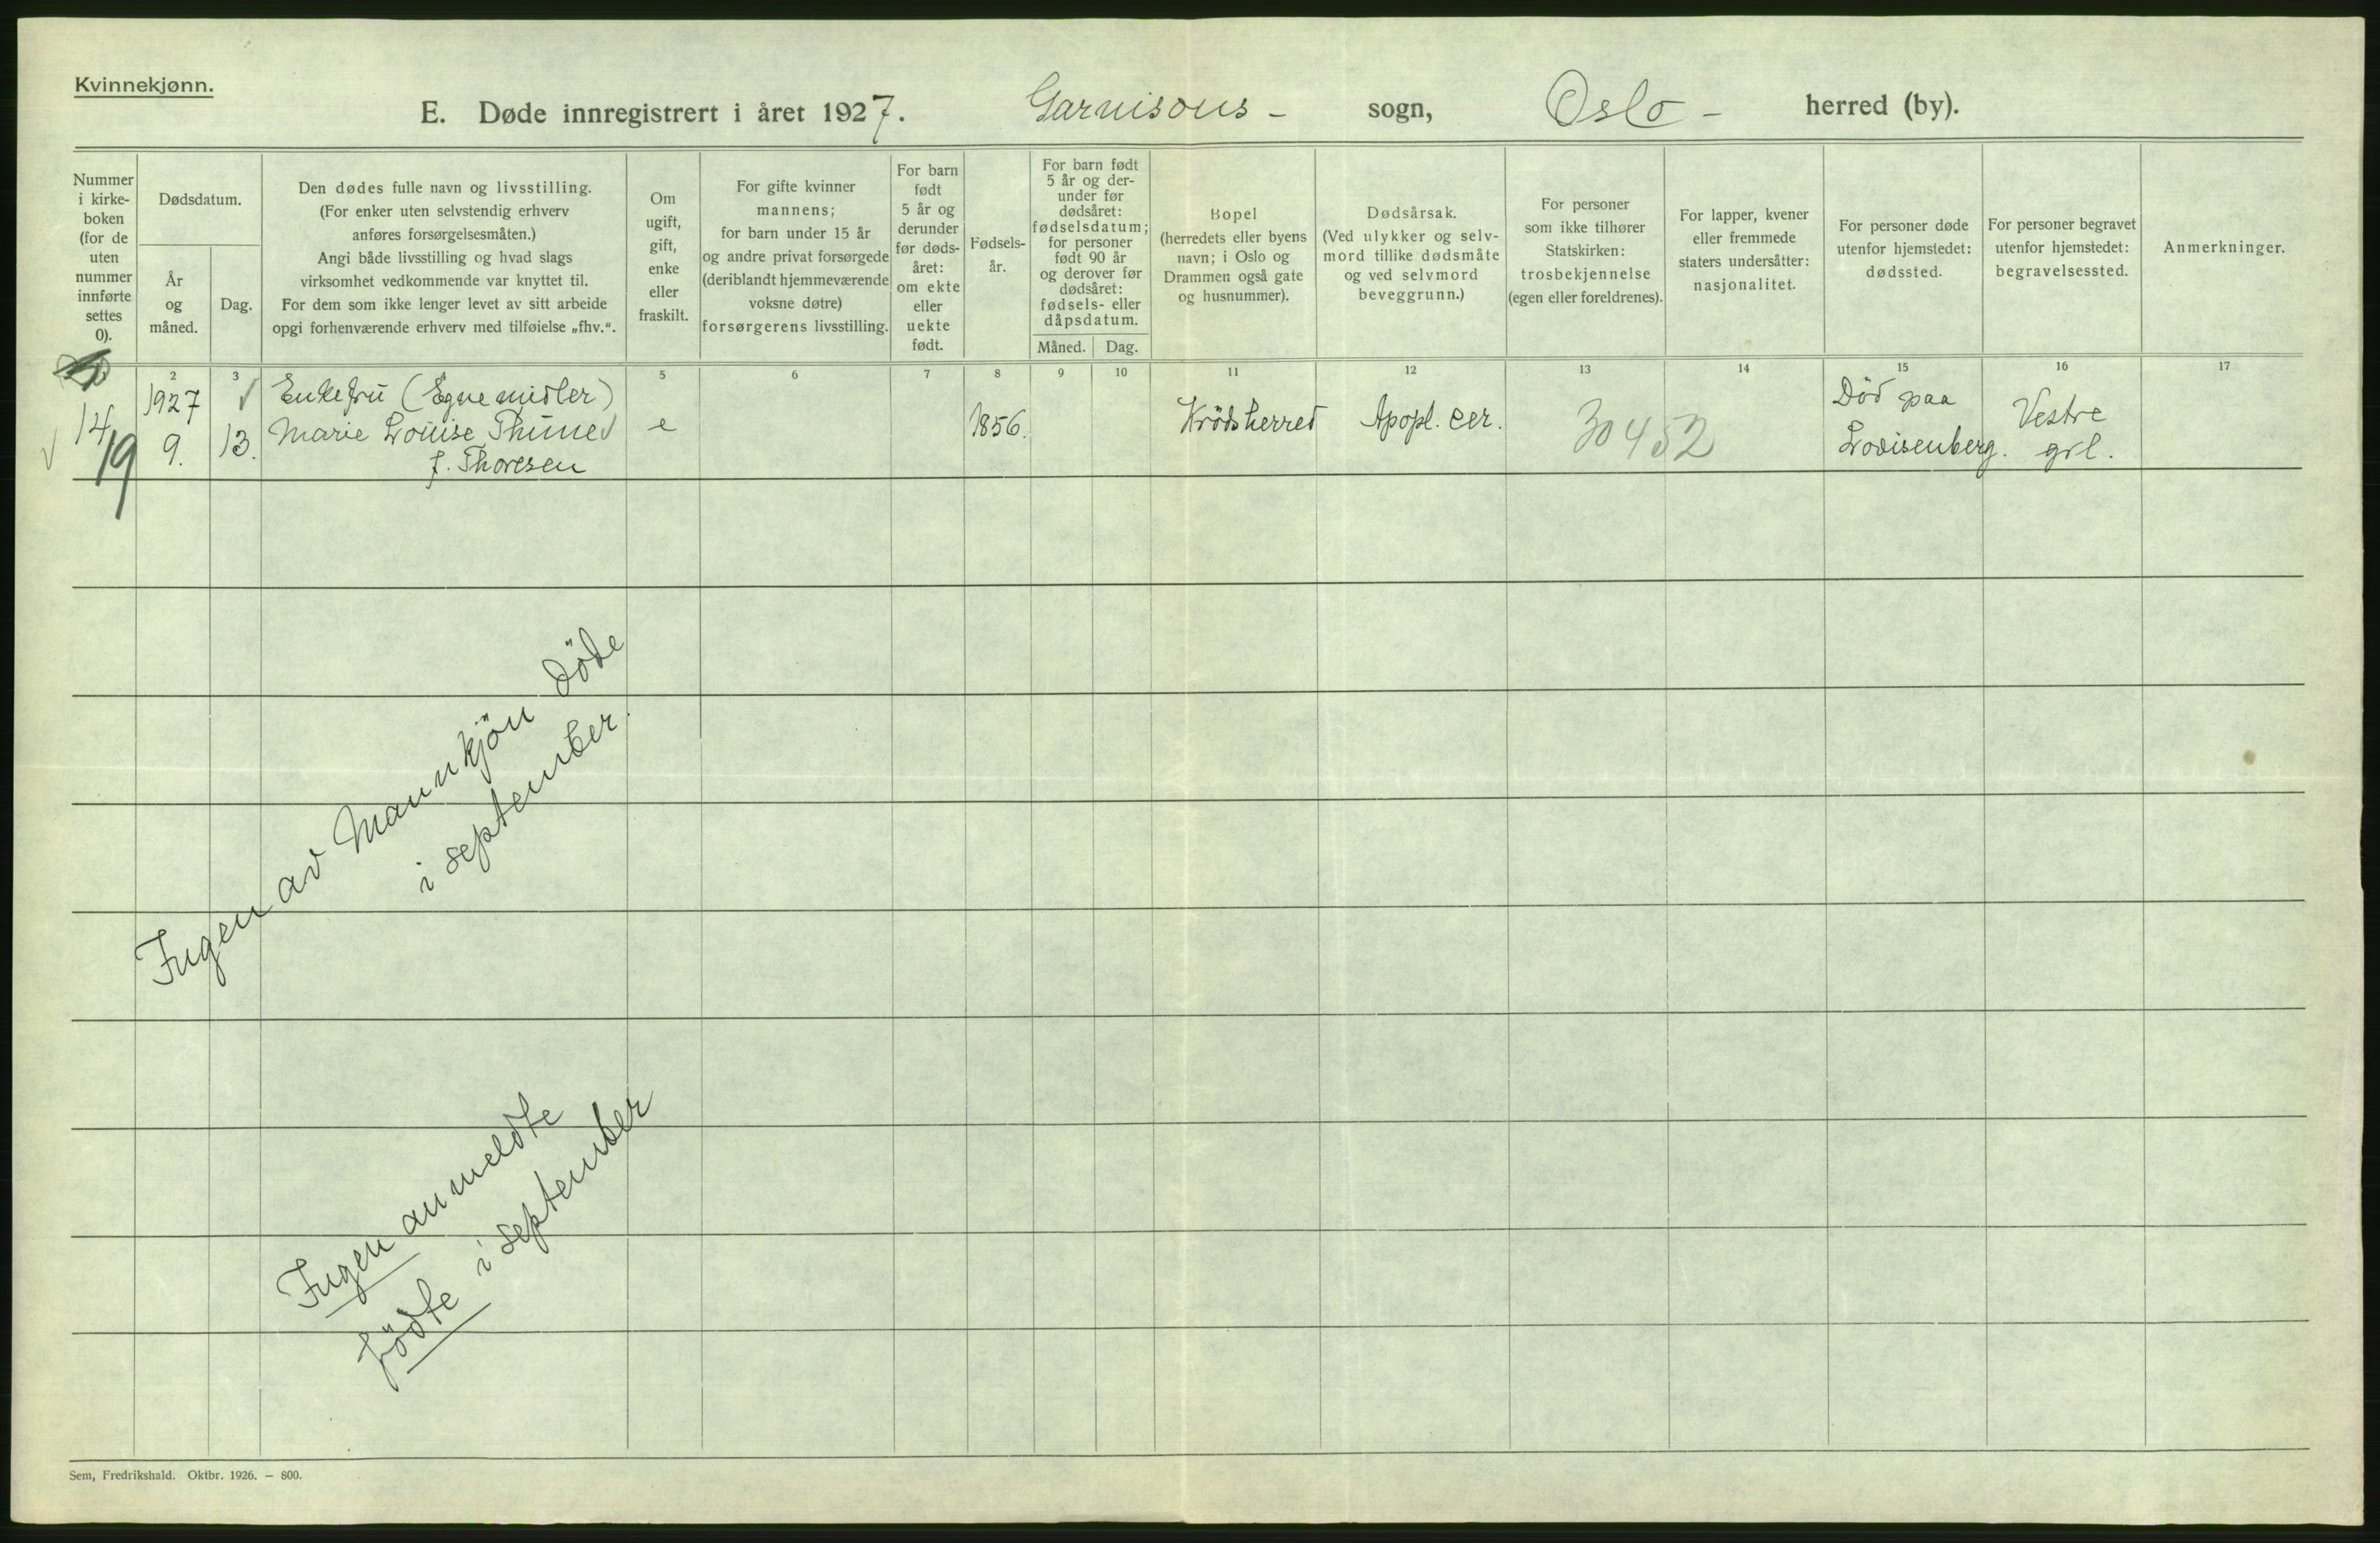 Kvinnekjønn.
E. Døde innregistrert i året 1927. Garnisons - sogn, Oslo - herred (by).
Nummer
i kirke-
boken
(for de
uten
nummer
innførte
settes
0).
Dødsdatum.
År
og
måned.
Dag.
Den dødes fulle navn og livsstilling.
(For enker uten selvstendig erhverv
anføres forsørgelsesmåten.)
Angi både livsstilling og hvad slags
virksomhet vedkommende var knyttet til.
For dem som ikke lenger levet av sitt arbeide
opgi forhenværende erhverv med tilføielse „fhv.“.
Om
ugift,
gift,
enke
eller
fraskilt.
For gifte kvinner
mannens;
for barn under 15 år
og andre privat forsørgede
(deriblandt hjemmeværende
voksne døtre)
forsørgerens livsstilling.
For barn
født
5 år og
derunder
før døds-
året:
om ekte
eller
uekte
født.
Fødsels-
år.
For barn født
5 år og der-
under før
dødsåret:
fødselsdatum;
for personer
født 90 år
og derover før
dødsåret:
fødsels- eller
dåpsdatum.
Måned. Dag.
Bopel
(herredets eller byens
navn; i Oslo og
Drammen også gate
og husnummer).
Dødsårsak.
(Ved ulykker og selv-
mord tillike dødsmåte
og ved selvmord
beveggrunn.)
For personer
som ikke tilhører
Statskirken:
trosbekjennelse
(egen eller foreldrenes).
For lapper, kvener
eller fremmede
staters undersåtter:
nasjonalitet.
For personer døde
utenfor hjemstedet:
dødssted.
For personer begravet
utenfor hjemstedet:
begravelsessted.
Anmerkninger.
2 3 4 5 6 7 8 9 10 11 12 13 14 15 16 17
14
19
1927
9.
13.
Enkefru (Egne midler)
Marie Louise Thune
f. Thoresen
e
1856.
Krödsherred
Apopl. cer.
30452
Död paa
Lovisenberg.
Vestre
grl.
Ingen av Mannkjön döde
i september.
Ingen anmeldte
födte i september
Sem, Fredrikshald. Oktbr. 1926. — 800.